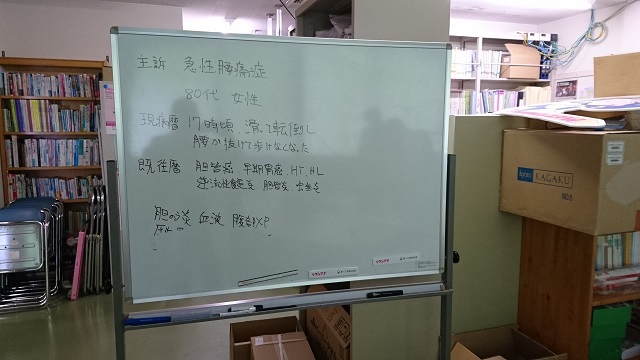 主訴 急性腰痛症
80代 女性
現病暦 17時頃 滑って転倒し
腰が抜けて歩けなくなった
既往暦 胆管癌 早期胃癌 HT、HL
逆流性食道炎 胆管炎
胆のう炎 血液 腹部XP
KAGAKU